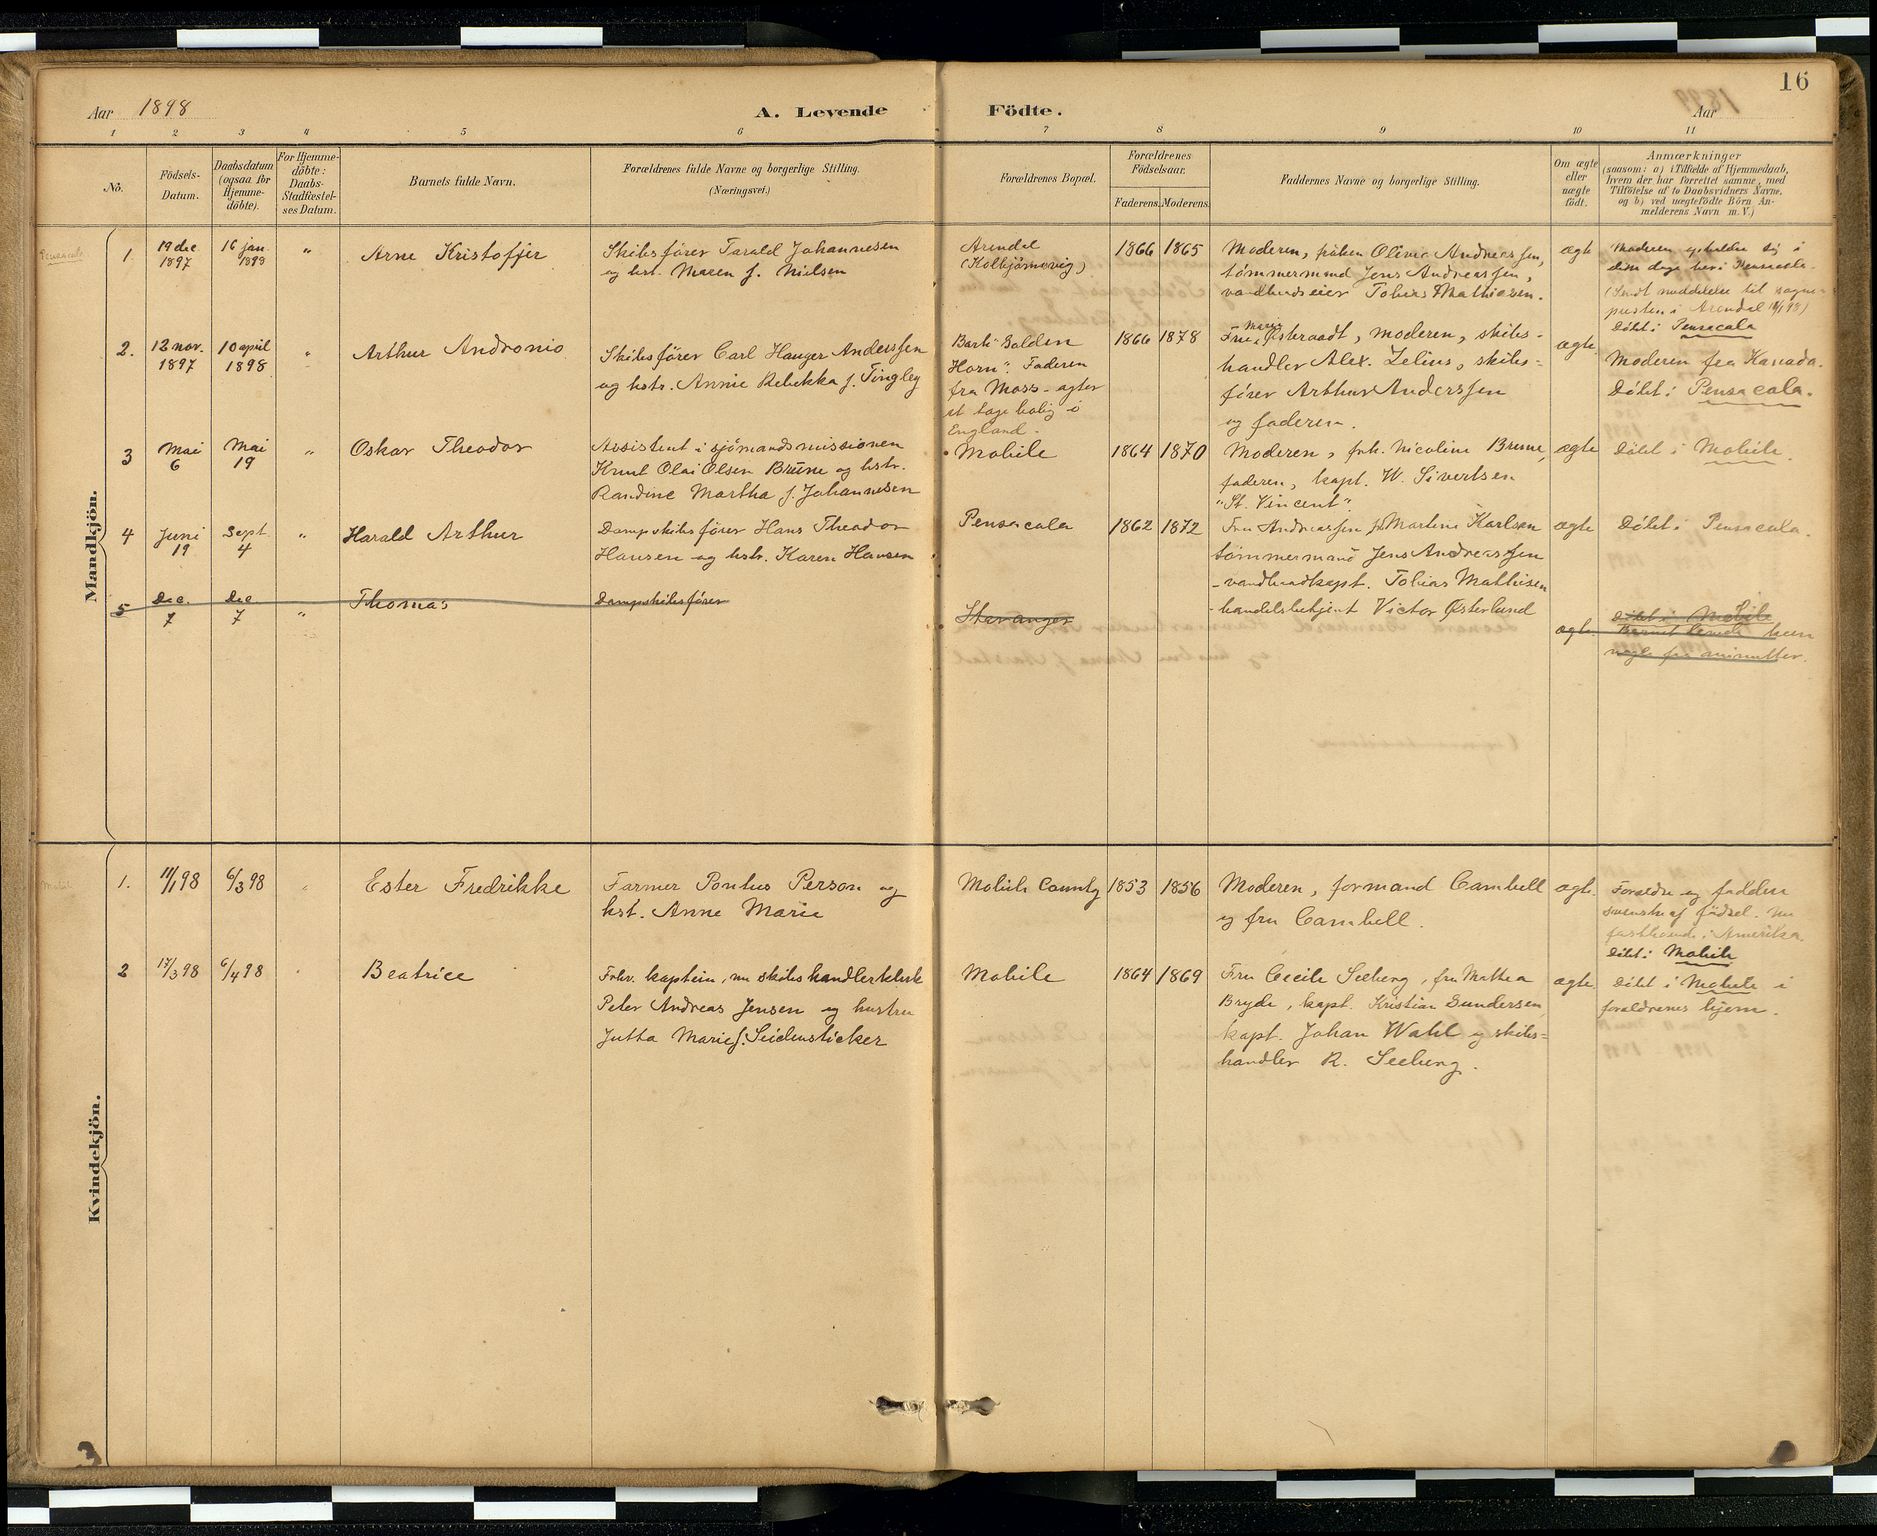 Aar 1898
A. Levende Födte.
16
Aar 1899
1 2 3 4 5 6 7 8 9 10 11
No.
Födsels-Datum.
Daabsdatum (ogsaa for Hjemme-döbte).
For Hjemme-döbte: Daabs-Stadfæstel-ses Datum.
Barnets fulde Navn.
Forældrenes fulde Navne og borgerlige Stilling.
(Næringsvei.)
Forældrenes Bopæl.
Forældrenes Födselsaar.
Faderens. Moderens.
Faddernes Navne og borgerlige Stilling.
Om ægte eller uægte födt.
Anmærkninger
(saasom: a) i Tilfælde af Hjemmedaab,
hvem der har forrettet samme, med
Tilföielse af to Daabsvidners Navne,
og b) ved uegtefödte Börn An-
melderens Navn m. V.)
Mandkjön.
Pensacola
1. 19 dec. 1897
16 jan. 1898
"
Arne Kristoffer
Skibsfører Tarald Johannesen
og hst. Maren f. Nielsen
Arendal
(Kolbjørnsvig)
1866 1865
Moderen, frøken Olivia Andreassen,
tømmermand Jens Andreassen,
vandbaadseier Tobias Mathiesen.
ægte
Moderen opholder sig i
disse dage her i Pensacola.
(Sendt meddelelse til sogne-
presten i Arendal
Døbt i Pensacola
2. 12 nov. 1897
10 april 1898
"
Arthur Andronio
Skibsfører Carl Hauger Anderssen
og hstr. Annie Rebekka f. Tingley
Bark "Golden
Horn". Faderen
fra Moss - agter
at tage bolig i
England.
1866 1878
Fru Marie Østeraadt, moderen, skibs-
handler Alex. Zelius, skibs-
fører Arthur Anderssen
og faderen.
ægte
Moderen fra Kanada.
Døbt i Pensacola.
3 Mai 6
Mai 19
"
Oskar Theodor
Assistent i sjømandsmissionen
Knut Olai Olsen Brune og hstr.
Randine Martha f. Johannesen
Mobile
1864 1870
Moderen, frk. Nicoline Brune,
faderen, kapt. W. Sivertsen
"St. Vincent".
ægte
Døbt i Mobile.
4 Juni 19
Sept. 4
"
Harald Arthur
Dampskibsfører Hans Theodor
Hansen og hstr. Karen Hansen
Pensacola
1862 1872
Fru Andreassen, Martine Karlsen
tømmermand Jens Andreassen
- vandbaadkapt. Tobias Mathisen
- handelsbetjent Victor Østerlund
ægte
Døbt i Pensacola.
5 Dec. 7
Dec. 7
"
Thomas
Dampskibsfører
Stavanger
ægte.
Døbt i Mobile
Barnet levede kun
nogle faa minutter.
Kvindekjön.
Mobile
1. 11/1 98
6/3 98
"
Ester Fredrikke
Farmer Pontus Person og
hst. Anne Marie
Mobile County
1853 1856
Moderen, formand Cambell
og fru Cambell.
ægte.
Forældre og faddere
svenske af fødsel. Nu
fastboende i Amerika.
Døbt i Mobile
2 17/3 98
6/4 98
"
Beatrice
Forhv. kaptein, nu skibshandlerklerk
Peter Andreas Jensen og hustru
Jutta Marie f. Seidensticker
Mobile
1864 1869
Fru Cecile Seeberg, fru Mathea
Bryde, kapt. Kristian Gundersen,
kapt. Johan Wahl og skibs-
handler R. Seeberg.
ægte.
Døbt i Mobile i
forældrenes hjem.